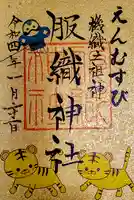 えんむすび
機織之祖神
服織神社
令和四年一月二十二日